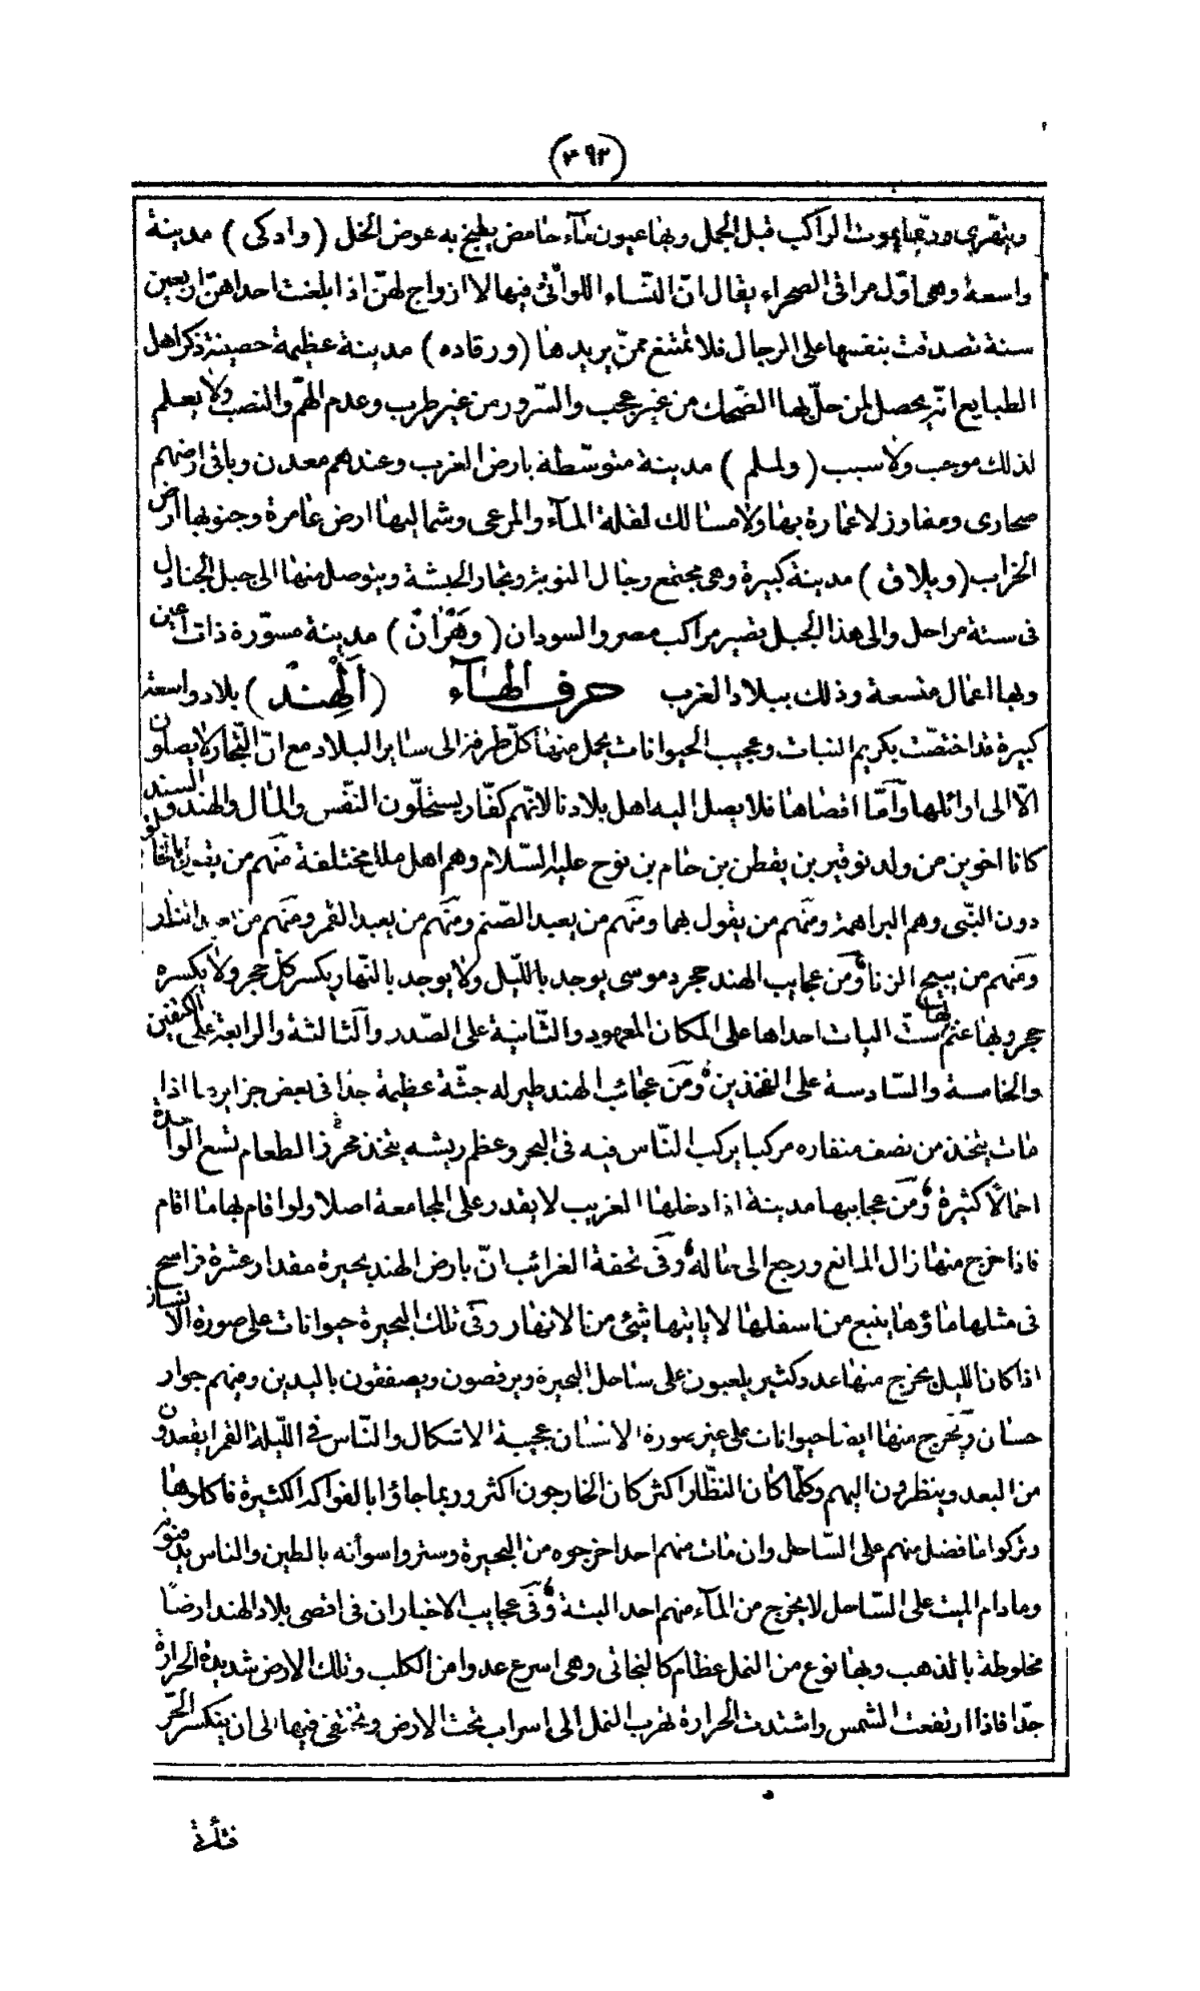 (٤٩٣)
ويتقرى وربما يموت الراكب قبل الجمل وبها عيون مآء حامض يطبخ به عوض الخل (وادكى) مدينة
واسعة وهى اوّل مراقى الصحراء يقال انّ النسّاء اللوأتى فيها لا ازواج لهنّ اذا بلغت احداهنّ اربعين
سنة تصدقت بنفسها على الرجال فلا تمتنع ممنّ يريدها (ورقاده) مدينة عظيمة حصينة ذكر اهل
الطبايع انّه يحصل لمن حلّ بها الضّحك من غير عجب والسّرور من غير طرب وعدم الهمّ والنصب ولا يعلم
لذلك موجب ولا سبب (ولملم) مدينة متوسّطة بارض الغرب وعندهم معدن وباقى ارضهم
صحارى ومفاوز لا عمارة بها ولا مسالك لقلة المآء والمرعى وشماليها ارض عامرة وجنوبها ارض
الخراب (ويلاق) مدينة كبيرة وهى مجتمع رجال النوبة وتجار الحبشة ويتوصل منها الى جبل الجنادل
فى ستة مراحل والى هذا الجبل يصير مراكب مصر والسودان (وَهْرَانٌ) مدينة مسوّرة ذات أعين
وبها اعمال متسعة وذلك ببلاد الغرب حرف الهـآء (اَلْهِنْدُ) بلاد واسعة
كبيرة قد اختصّت بكريم النبات وعجيب الحيوانات يحمل منها كلّ طرفة الى ساير البلاد مع انّ التّجار لا يصلون
الّا الى اوائلها وآمّا اقصاها فلا يصل اليه اهل بلادنا لانّهم كفّار يستحلّون النّفس والمال والهند والسند
كانا اخوين من ولد نوقير بن يقطن بن حام بن نوح عليه السّلام وهم اهل ملل مختلفة منهم من يقول بالخالق
دون النّبى وهم البراهمة ومنهم من يقول بها ومنهم من يعبد الصّنم ومنهم من يعبد القمر ومنهم من يعبد النار
ومنهم من يبيح الزنا ومَن عجايب الهند حجر دموسى يوجد بالليّل ولا يوجد بالنّهار يكسر كلّ حجر ولا يكسره
حجر وبها غنم لها ستّ اليات احداها على المكان المعهود والثّانية على الصّدر والثالثة والرابعة على الكتفين
والخامسة والسّادسة على الفخذين ومَن عجائب الهند طير له جثّة عظيمة جدا فى بعض جزايرها اذا
مات يتخذ من نصف منقاره مركبا يركب النّاس فيه فى البحر وعظم ريشه يتخذ للطعام تسع الواحدة
احمالاً كثيرة ومَن عجايبها مدينة اذا دخلها الغريب لا يقدر على المجامعة اصلا ولو اقام بها ما اقام
فاذا خرج منها زال المانع ورجع الى حاله وفَى تحفة الغرائب انّ بارض الهند بحيرة مقدار عشرة فراسخ
فى مثلها ماؤها ينبع من اسفلها لا ياتيها شيئ من الانهار وفى تلك البحيرة حيوانات على صورة الانسان
اذا كان الليل يخرج منها عدد كثير يلعبون على ساحل البحيرة ويرقصون ويصفقون باليدين ومنهم جوار
حسان ويخرج منها ايضا حيوانات على غير صورة الانسان عجيبة الاشكال والنّاس فى الليّلة القمرا يقعدون
من البعد وينظرون اليهم وكلّما كان النظّار اكثر كان الخارجون اكثر وربما جاؤا بالفواكه الكثيرة فاكلوها
وتركوا ما فضل منهم على السّاحل وان مات منهم احد اخرجوه من البحيرة وستروا سوأته بالطين والناس يدفنونه
وما دام الميت على السّاحل لا يخرج من المآء منهم احد البتة وفَى عجايب الاخبار ان فى اقصى بلاد الهند ارضاً
مخلوطة بالذهب وبها نوع من النمل عظام كالبخاتى وهى اسرع عدوا من الكلب وتلك الارض شديدة الحرارة
جدّا فاذا ارتفعت الشمس واشتدت الحرارة تهرب النمل الى اسراب تحت الارض وتختفى فيها الى ان ينكسر الحرّ
فتأتى